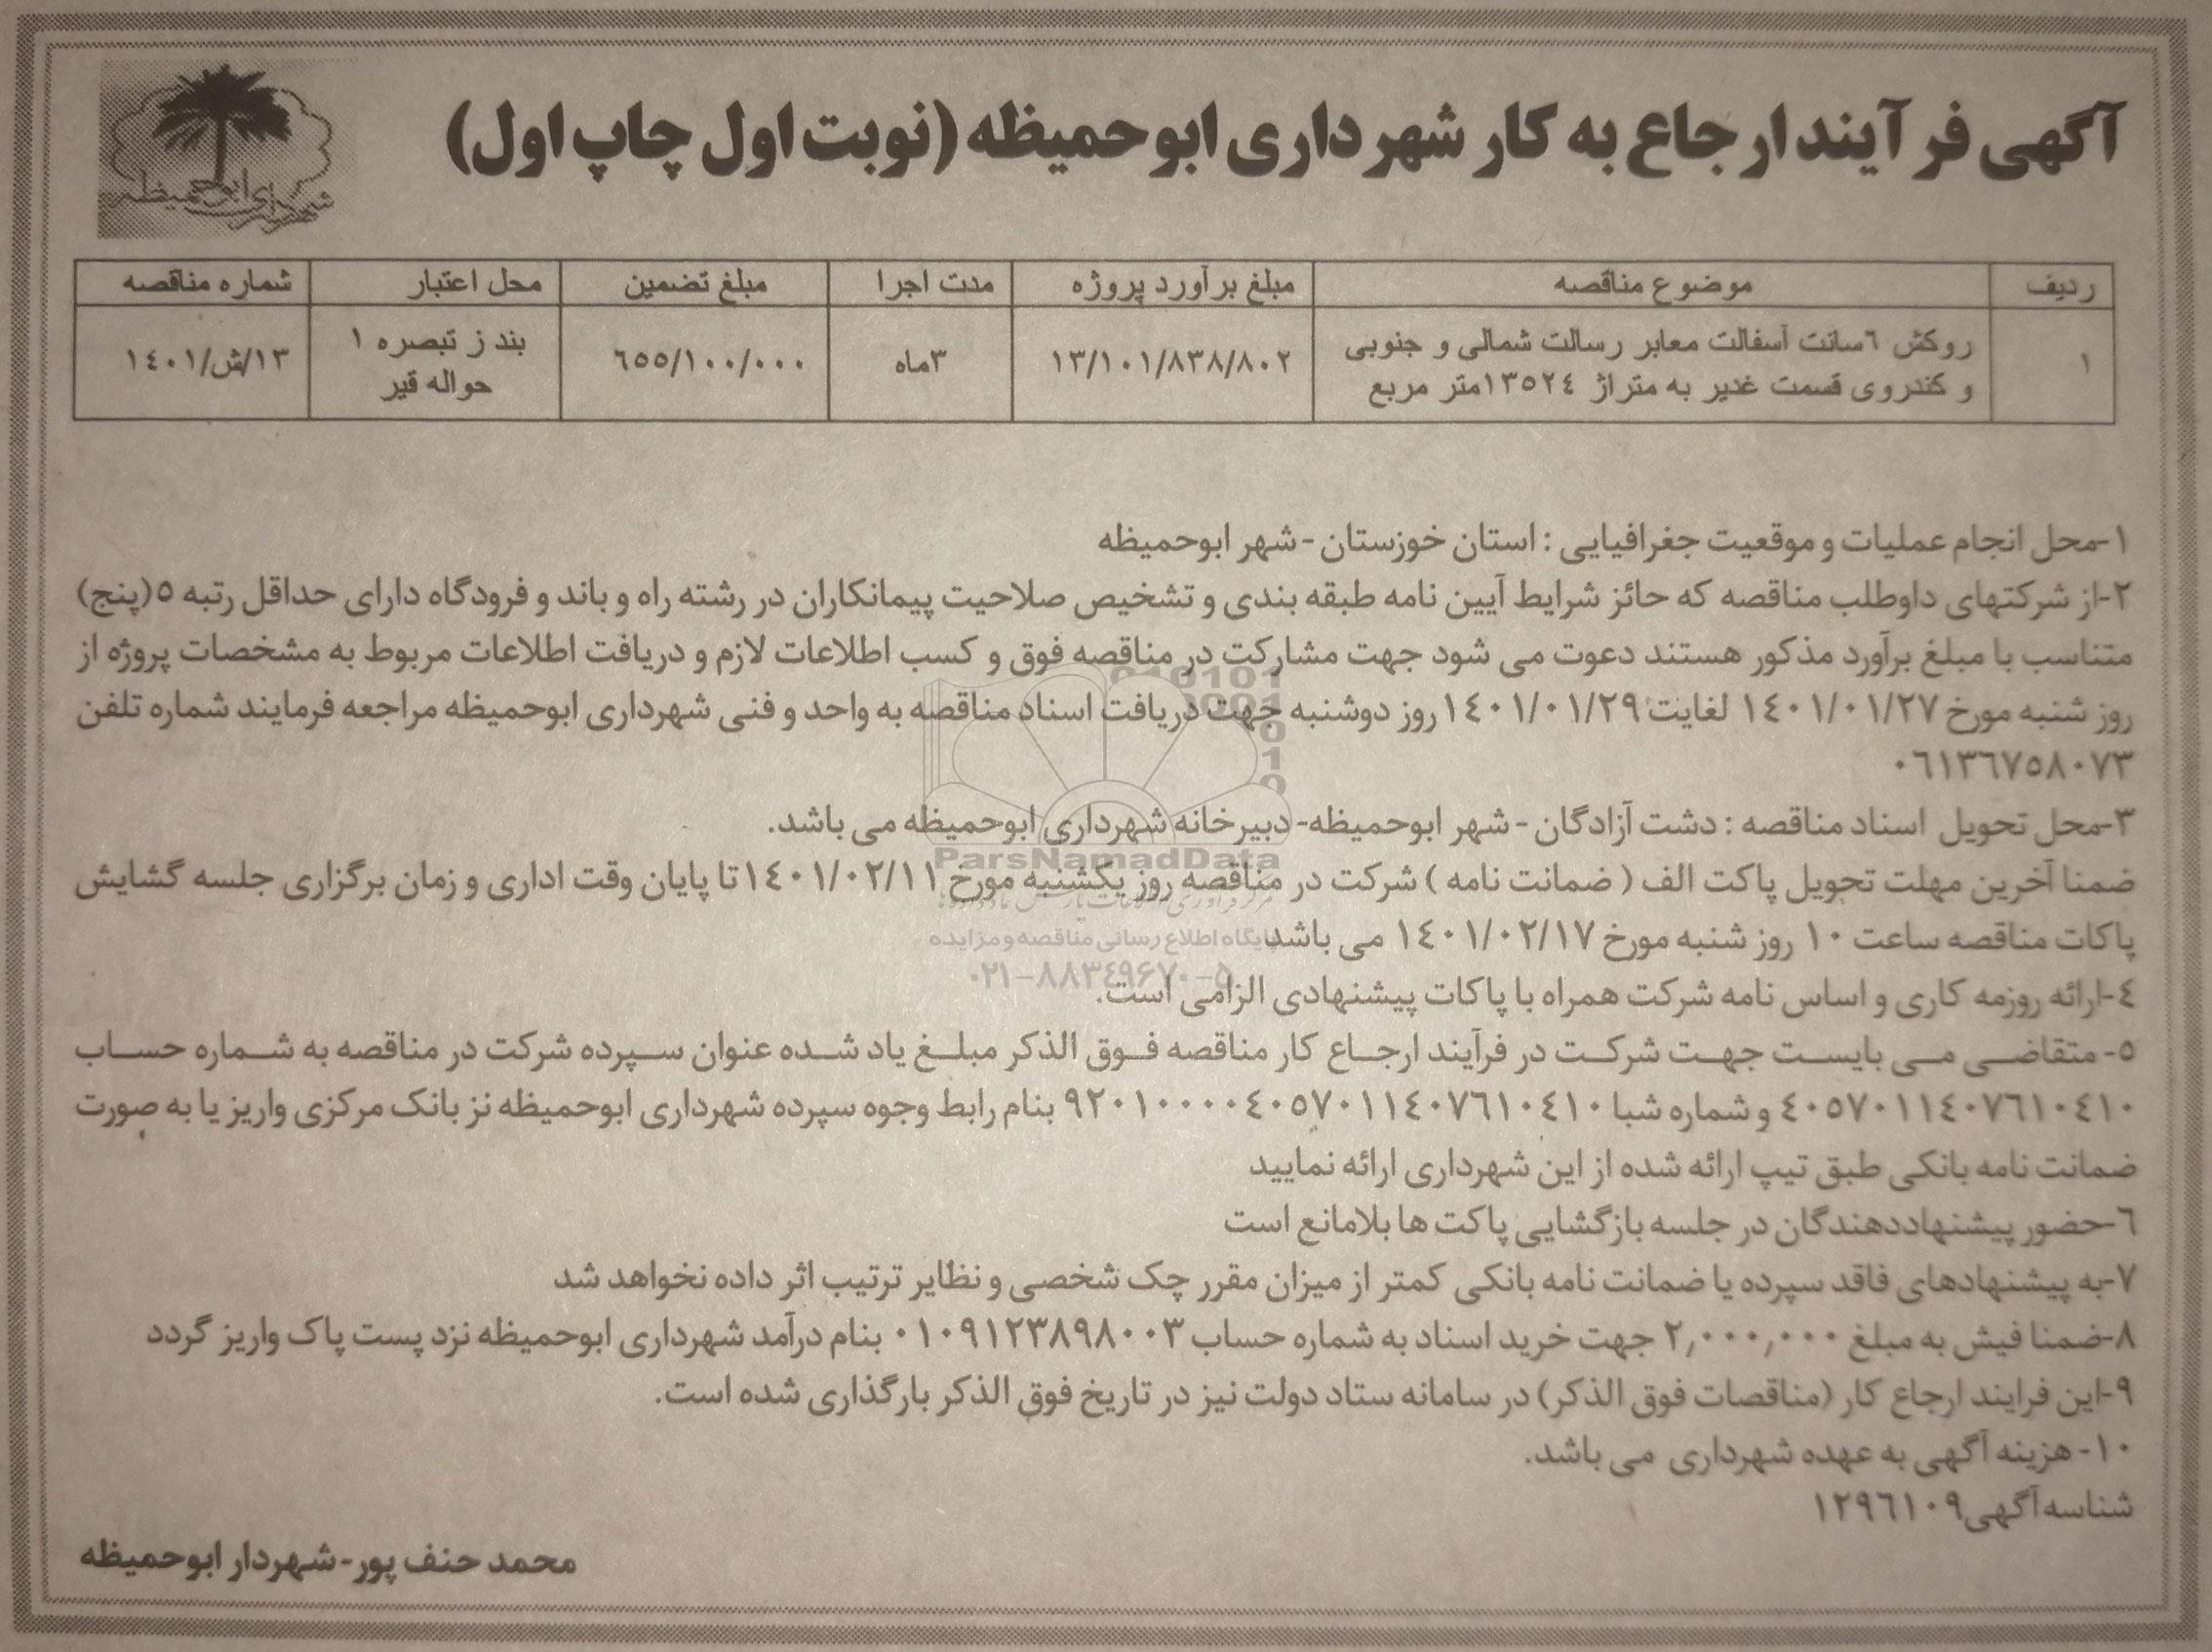 آگهی فرآیند ارجاع به کار شهرداری ابوحمیظه (نوبت اول چاپ اول)
شهرداری ابوحمیظه
ردیف موضوع مناقصه مبلغ برآورد پروژه مدت اجرا مبلغ تضمین محل اعتبار شماره مناقصه
۱ روکش ٦سانت آسفالت معابر رسالت شمالی و جنوبی و کندروی قسمت غدیر به متراژ ۱۳٥۲٤متر مربع ۱۳/۱۰۱/۸۳۸/۸۰۲ ۳ماه ٦٥٥/۱۰۰/۰۰۰ بند ز تبصره ۱ حواله قیر ۱۳/ش/۱٤۰۱
۱-محل انجام عملیات و موقعیت جغرافیایی : استان خوزستان - شهر ابوحمیظه
۲-از شرکتهای داوطلب مناقصه که حائز شرایط آیین نامه طبقه بندی و تشخیص صلاحیت پیمانکاران در رشته راه و باند و فرودگاه دارای حداقل رتبه ٥(پنج)
متناسب با مبلغ برآورد مذکور هستند دعوت می شود جهت مشارکت در مناقصه فوق و کسب اطلاعات لازم و دریافت اطلاعات مربوط به مشخصات پروژه از
روز شنبه مورخ ۱٤۰۱/۰۱/۲۷ لغایت ۱٤۰۱/۰۱/۲۹ روز دوشنبه جهت دریافت اسناد مناقصه به واحد و فنی شهرداری ابوحمیظه مراجعه فرمایند شماره تلفن
۰٦۱۳٦۷٥۸۰۷۳
۳-محل تحویل اسناد مناقصه : دشت آزادگان - شهر ابوحمیظه- دبیرخانه شهرداری ابوحمیظه می باشد.
ParsNamadData
ضمنا آخرین مهلت تحویل پاکت الف ( ضمانت نامه ) شرکت در مناقصه روز یکشنبه مورخ ۱٤۰۱/۰۲/۱۱ تا پایان وقت اداری و زمان برگزاری جلسه گشایش
پاکات مناقصه ساعت ۱۰ روز شنبه مورخ ۱٤۰۱/۰۲/۱۷ می باشد
پایگاه اطلاع رسانی مناقصه و مزایده
۰۲۱-۸۸۳۴۹۶۷۰-۵
٤-ارائه روزمه کاری و اساس نامه شرکت همراه با پاکات پیشنهادی الزامی است.
٥- متقاضی می بایست جهت شرکت در فرآیند ارجاع کار مناقصه فوق الذکر مبلغ یاد شده عنوان سپرده شرکت در مناقصه به شماره حساب
٤۰٥۷۰۱۱٤۰۷٦۱۰٤۱۰ و شماره شبا ۹۲۰۱۰۰۰۰٤۰٥۷۰۱۱٤۰۷٦۱۰٤۱۰ بنام رابط وجوه سپرده شهرداری ابوحمیظه نز بانک مرکزی واریز یا به صورت
ضمانت نامه بانکی طبق تیپ ارائه شده از این شهرداری ارائه نمایید
٦-حضور پیشنهاددهندگان در جلسه بازگشایی پاکت ها بلامانع است
۷-به پیشنهادهای فاقد سپرده یا ضمانت نامه بانکی کمتر از میزان مقرر چک شخصی و نظایر ترتیب اثر داده نخواهد شد
۸-ضمنا فیش به مبلغ ۲,۰۰۰,۰۰۰ جهت خرید اسناد به شماره حساب ۰۱۰۹۱۲۳۸۹۸۰۰۳ بنام درآمد شهرداری ابوحمیظه نزد پست پاک واریز گردد
۹-این فرایند ارجاع کار (مناقصات فوق الذکر) در سامانه ستاد دولت نیز در تاریخ فوق الذکر بارگذاری شده است.
۱۰- هزینه آگهی به عهده شهرداری می باشد.
شناسه آگهی ۱۲۹٦۱۰۹
محمد حنف پور-شهردار ابوحمیظه